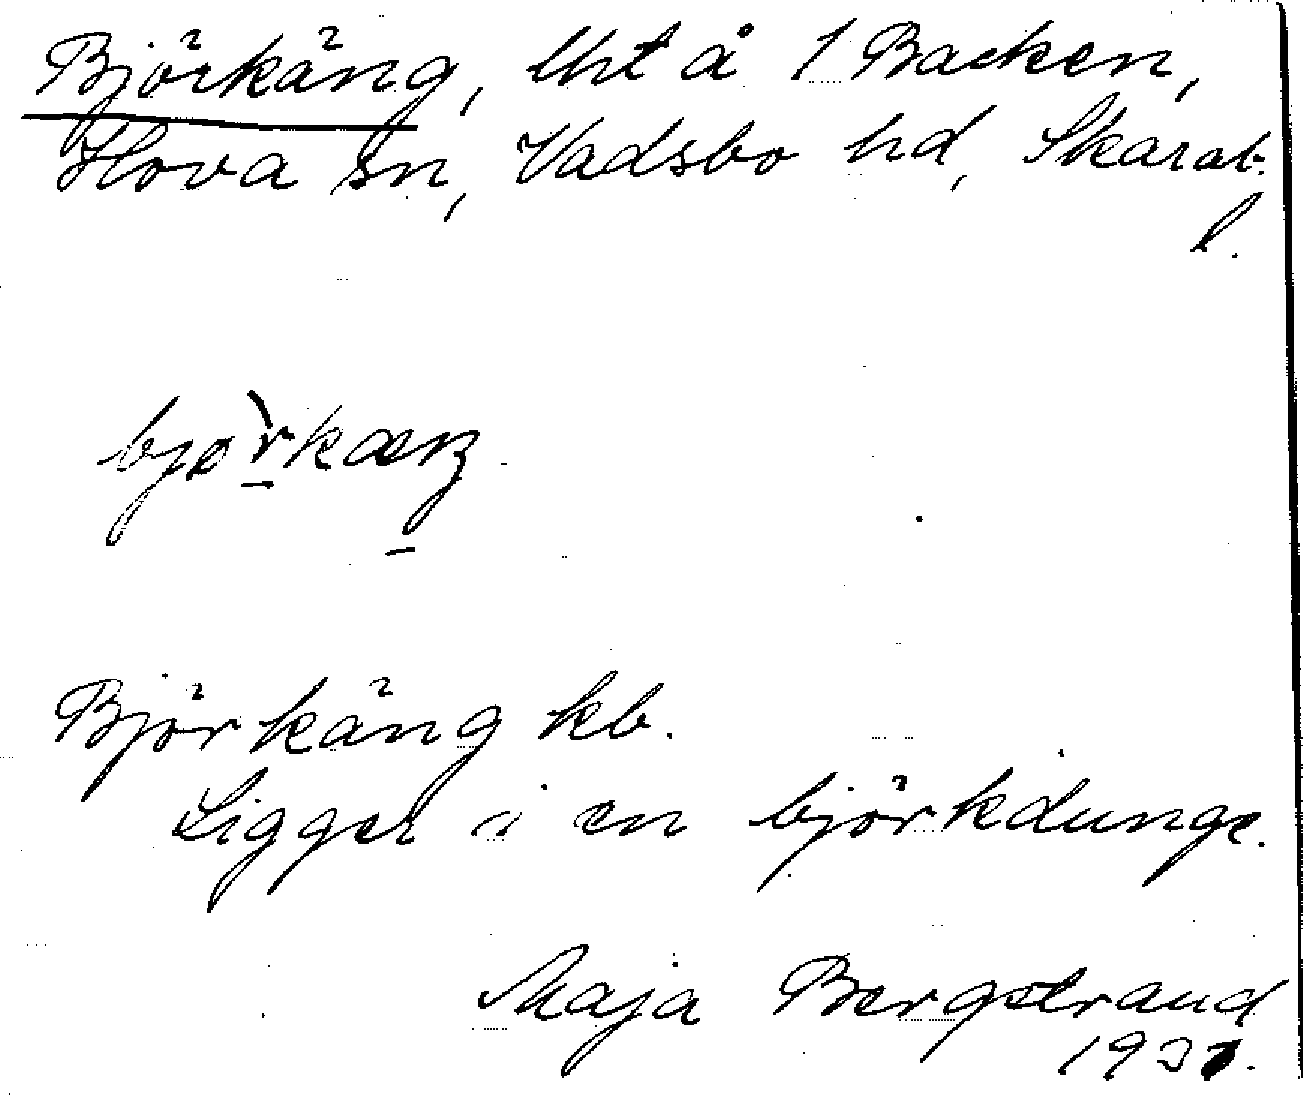 Björkäng, lht å 1 Backen,
Hova sn, Vadsbo hd, Skarab.
l.
bjørkæŋ
Björkäng kb.
Ligger i en björkdunge.
Maja Bergstrand